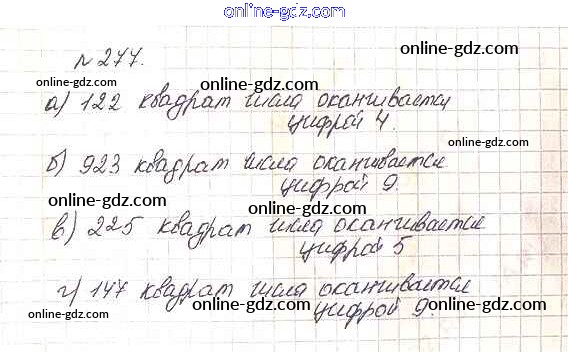 online-gdz.com
№ 277.
online-gdz.com
online-gdz.com
online-gdz.com
а) 122 квадрат числа оканчивается
online-gdz.com
цифрой 4.
online-gdz.com
б) 923 квадрат числа оканчивается
цифрой 9.
online-gdz.com
online-gdz.com
в) 225 квадрат числа оканчивается
цифрой 5
online-gdz.com
г) 147 квадрат числа оканчивается
цифрой 9.
online-gdz.com
online-gdz.com
online-gdz.com